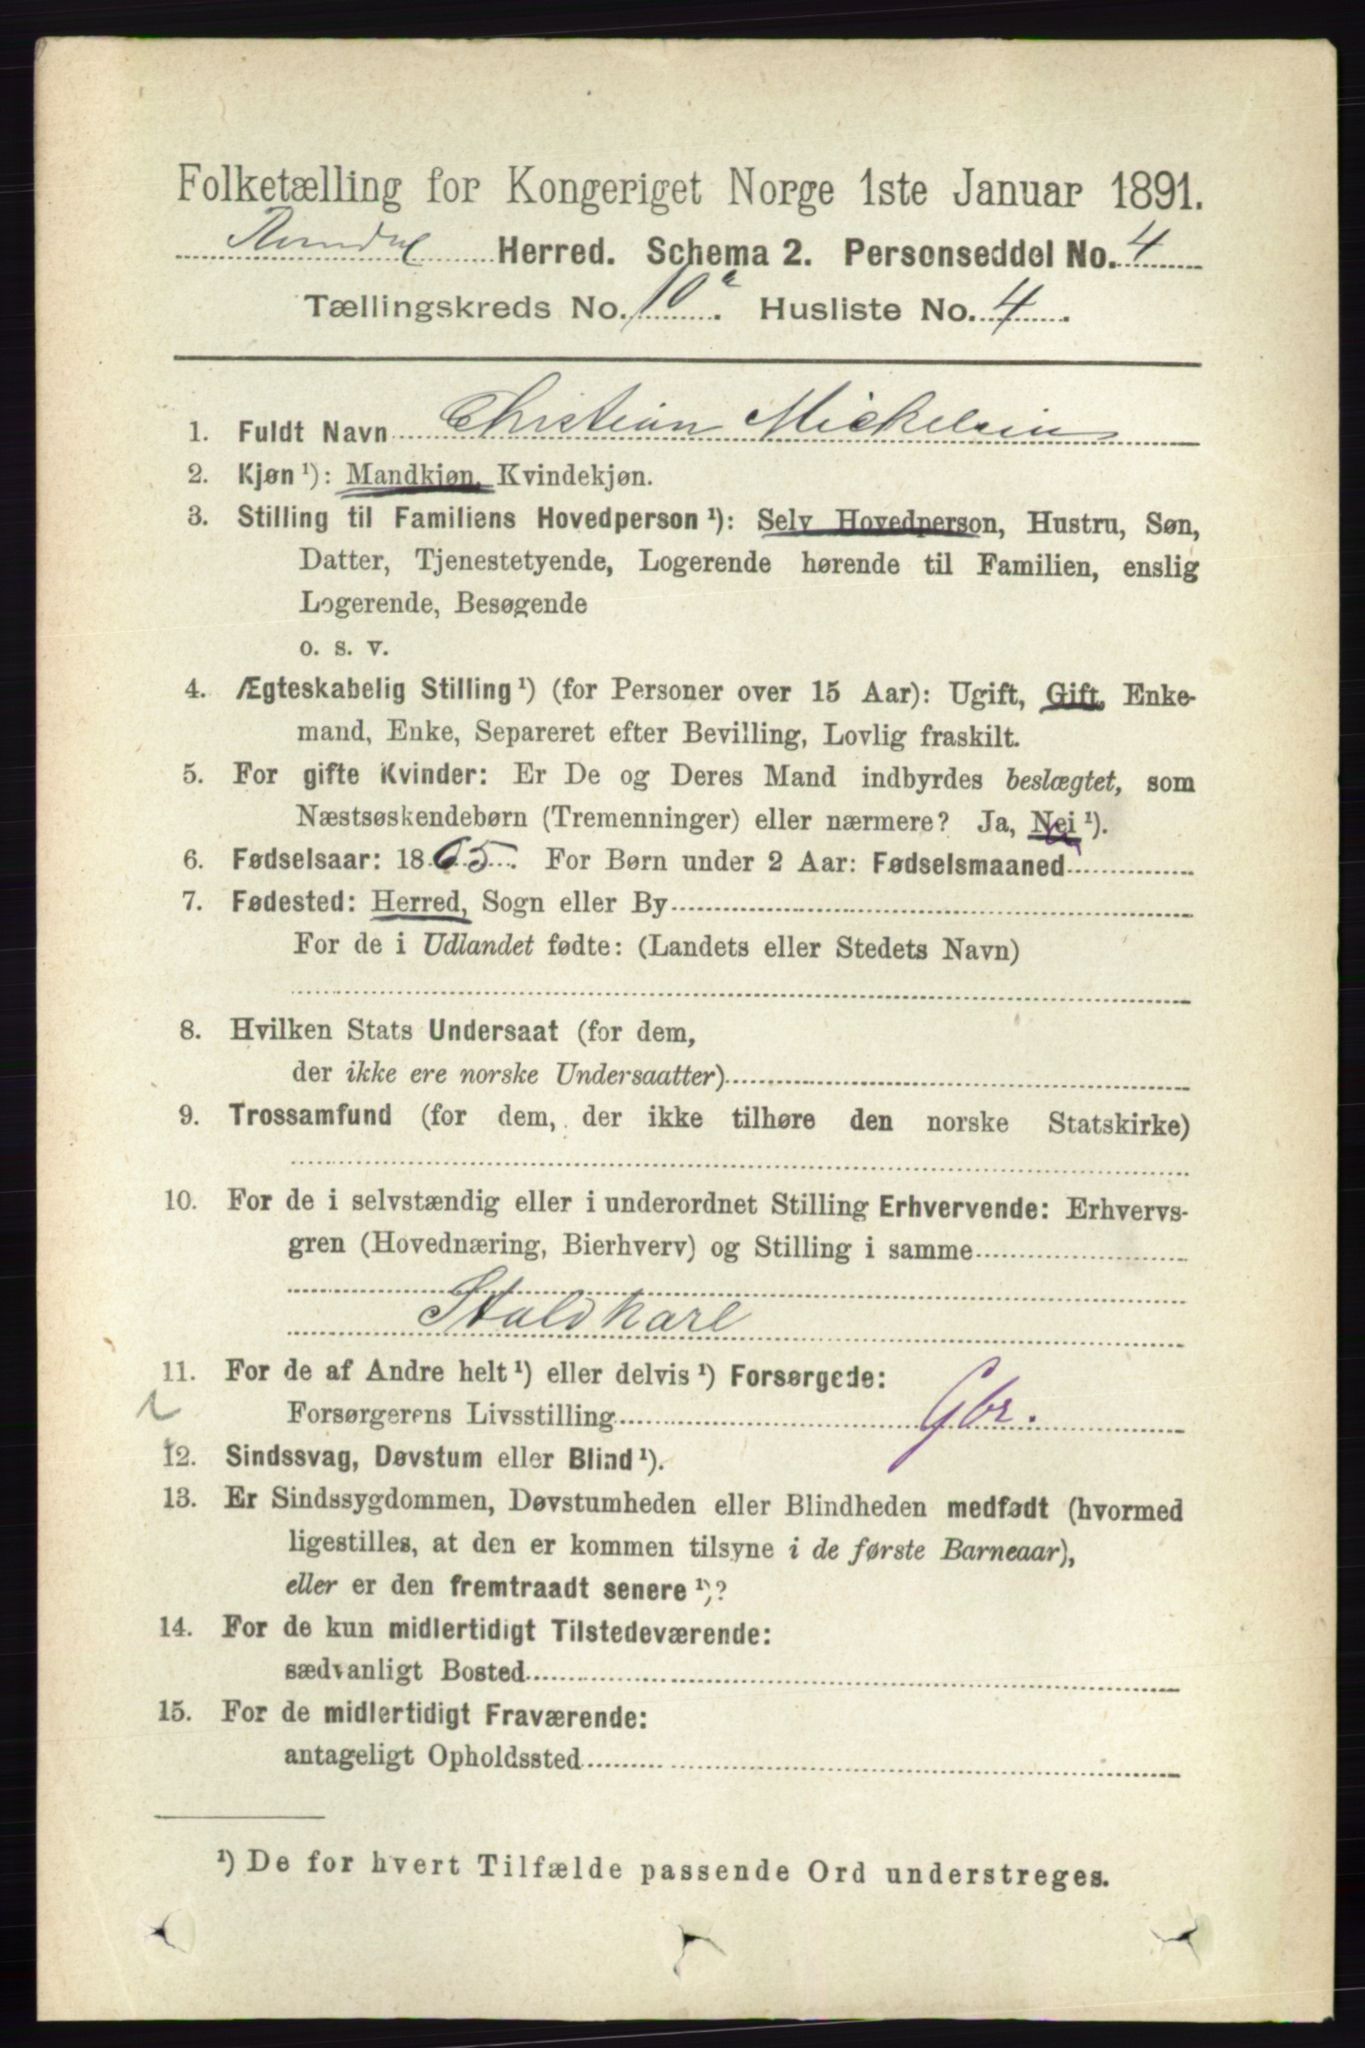 Folketælling for Kongeriget Norge 1ste Januar 1891.
Herred. Schema 2. Personseddel No. 4
Tællingskreds No. 10a. Husliste No. 4.
1. Fuldt Navn Christian Mickelsen
2. Kjøn ¹): Mandkjøn, Kvindekjøn.
3. Stilling til Familiens Hovedperson ¹): Selv Hovedperson, Hustru, Søn,
Datter, Tjenestetyende, Logerende hørende til Familien, enslig
Logerende, Besøgende
o. s. v.
4. Ægteskabelig Stilling ¹) (for Personer over 15 Aar): Ugift, Gift, Enke-
mand, Enke, Separeret efter Bevilling, Lovlig fraskilt.
5. For gifte Kvinder: Er De og Deres Mand indbyrdes beslægtet, som
Næstsøskendebørn (Tremenninger) eller nærmere? Ja, Nei ¹).
6. Fødselsaar: 1865. For Børn under 2 Aar: Fødselsmaaned
7. Fødested: Herred, Sogn eller By
For de i Udlandet fødte: (Landets eller Stedets Navn)
8. Hvilken Stats Undersaat (for dem,
der ikke ere norske Undersaatter)
9. Trossamfund (for dem, der ikke tilhøre den norske Statskirke)
10. For de i selvstændig eller i underordnet Stilling Erhvervende: Erhvervs-
gren (Hovednæring, Bierhverv) og Stilling i samme
Staldkarl
11. For de af Andre helt ¹) eller delvis ¹) Forsørgede:
Forsørgerens Livsstilling Gbr.
12. Sindssvag, Døvstum eller Blind ¹).
13. Er Sindssygdommen, Døvstumheden eller Blindheden medfødt (hvormed
ligestilles, at den er kommen tilsyne i de første Barneaar),
eller er den fremtraadt senere ¹)?
14. For de kun midlertidigt Tilstedeværende:
sædvanligt Bosted
15. For de midlertidigt Fraværende:
antageligt Opholdssted
¹) De for hvert Tilfælde passende Ord understreges.